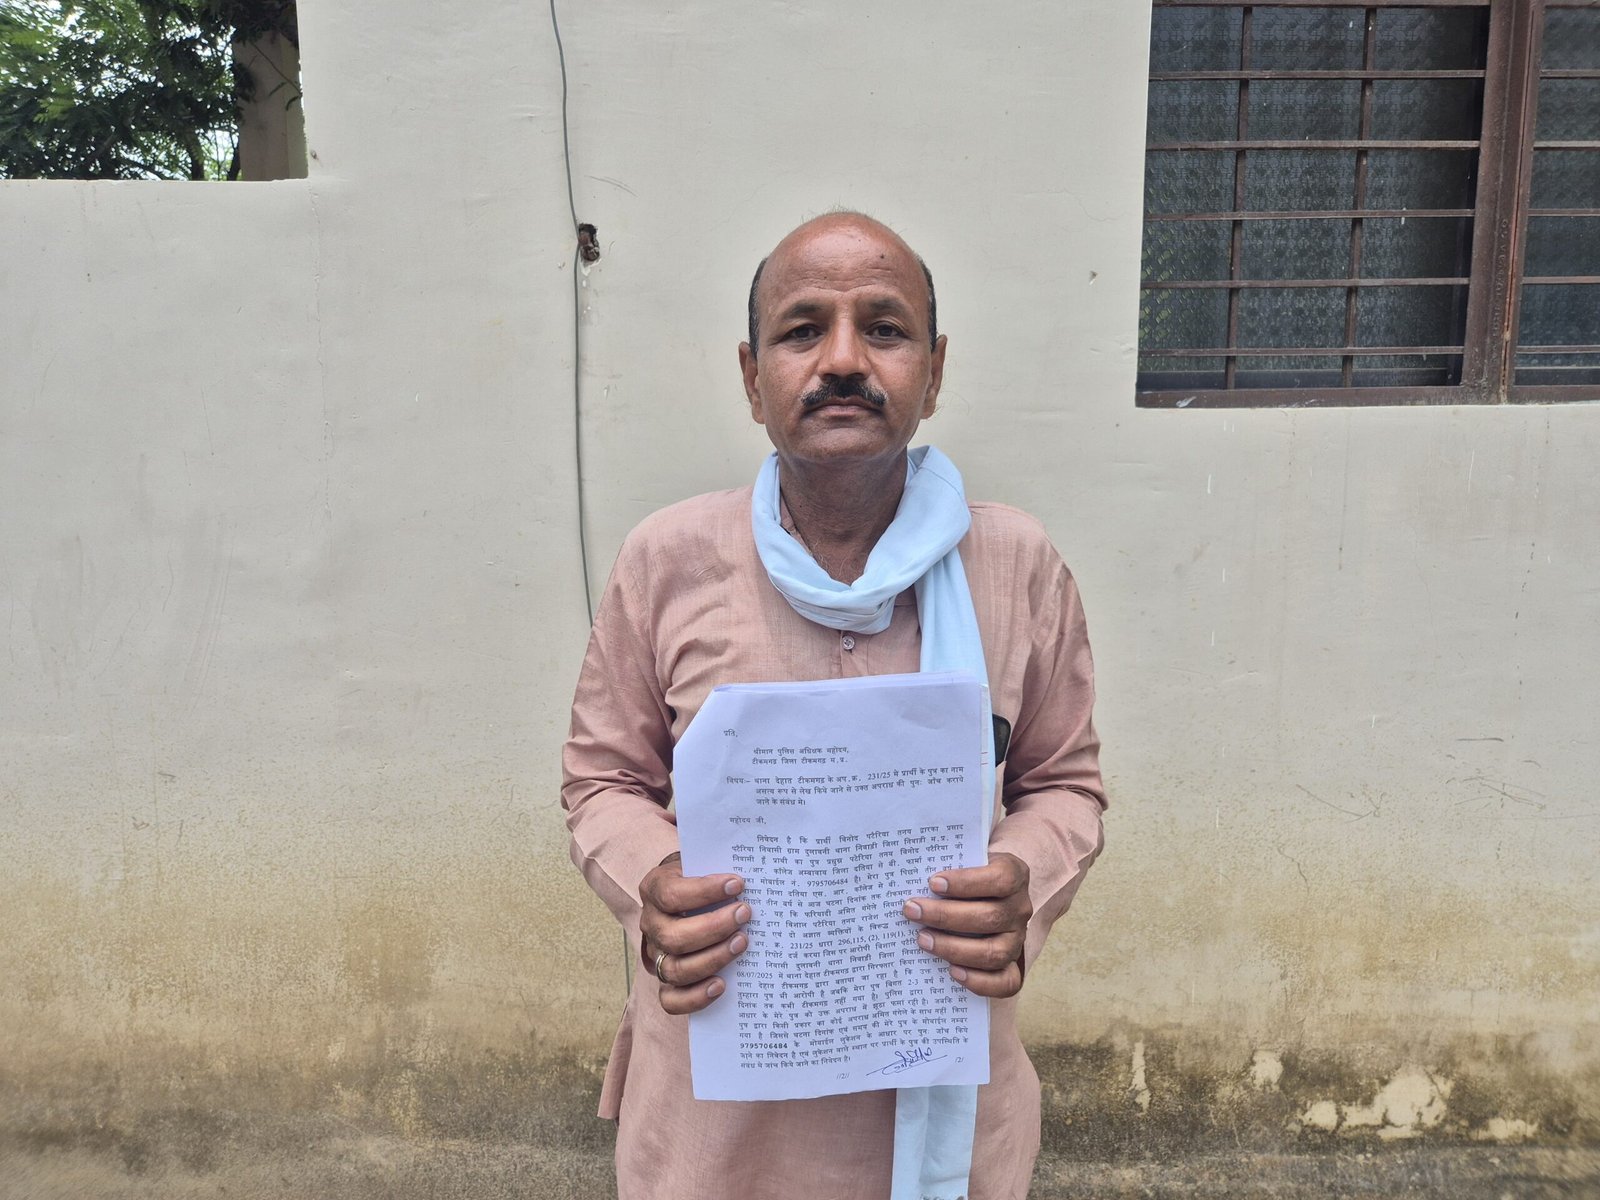 प्रति,
श्रीमान पुलिस अधिक्षक महोदय,
टीकमगढ़ जिला टीकमगढ़ म.प्र.
विषयः– थाना देहात टीकमगढ़ के अप.क्र. 231/25 मे प्रार्थी के पुत्र का नाम
असत्य रूप से लेख किये जाने से उक्त अपराध की पुनः जाँच कराये
जाने के संबंध मे।
महोदय जी,
निवेदन है कि प्रार्थी बिनोद पटैरिया तनय द्वारका प्रसाद
पटैरिया निवासी ग्राम दुलावनी थाना निवाड़ी जिला निवाड़ी म.प्र. का
निवासी हूँ प्रार्थी का पुत्र प्रधुम्न पटैरिया तनय बिनोद पटैरिया जो
एस./आर. कॉलेज अम्बावाय जिला दतिया से बी. फार्मा का छात्र है
मोबाईल नं. 9795706484 है। मेरा पुत्र पिछले तीन वर्ष से
जिला दतिया एस. आर. कॉलेज मे बी. फार्मा
पिछले तीन वर्ष से आज घटना दिनांक तक टीकमगढ़ नहीं
2- यह कि फरियादी अमित नंगेले निवासी
द्वारा विशाल पटैरिया तनय राजेश
विरूद्ध एवं दो अज्ञात व्यक्तियों के विरूद्ध थाना
अप. क्र. 231/25 धारा 296,115, (2), 119(1), 3(5)
तहत रिपोर्ट दर्ज करवा जिस पर आरोपी विशाल
पटैरिया निवासी दुलावनी थाना निवाड़ी जिला निवाड़ी
08/07/2025 मे थाना देहात टीकमगढ़ द्वारा गिरफ्तार किया गया था
थाना देहात टीकमगढ़ द्वारा बताया जा रहा है कि उक्त
तुम्हारा पुत्र भी आरोपी है जबकि मेरा पुत्र विगत 2-3 वर्ष से
दिनांक तक कभी टीकमगढ़ नहीं गया है। पुलिस द्वारा बिना किसी
आधार के मेरे पुत्र को उक्त अपराध में झूठा फसा रही है। जबकि मेरे
पुत्र द्वारा किसी प्रकार का कोई अपराध अमित नंगेले के साथ नहीं किया
गया है जिससे घटना दिनांक एवं समय की मेरे पुत्र के मोबाईल नम्बर
9795706484 के मोबाईल लुकेशन के आधार पर पुनः जाँच किये
जाने का निवेदन है एवं लुकेशन वाले स्थान पर प्रार्थी के पुत्र की उपस्थिति के
संबंध मे जांच किये जाने का निवेदन है।
//2// /2/